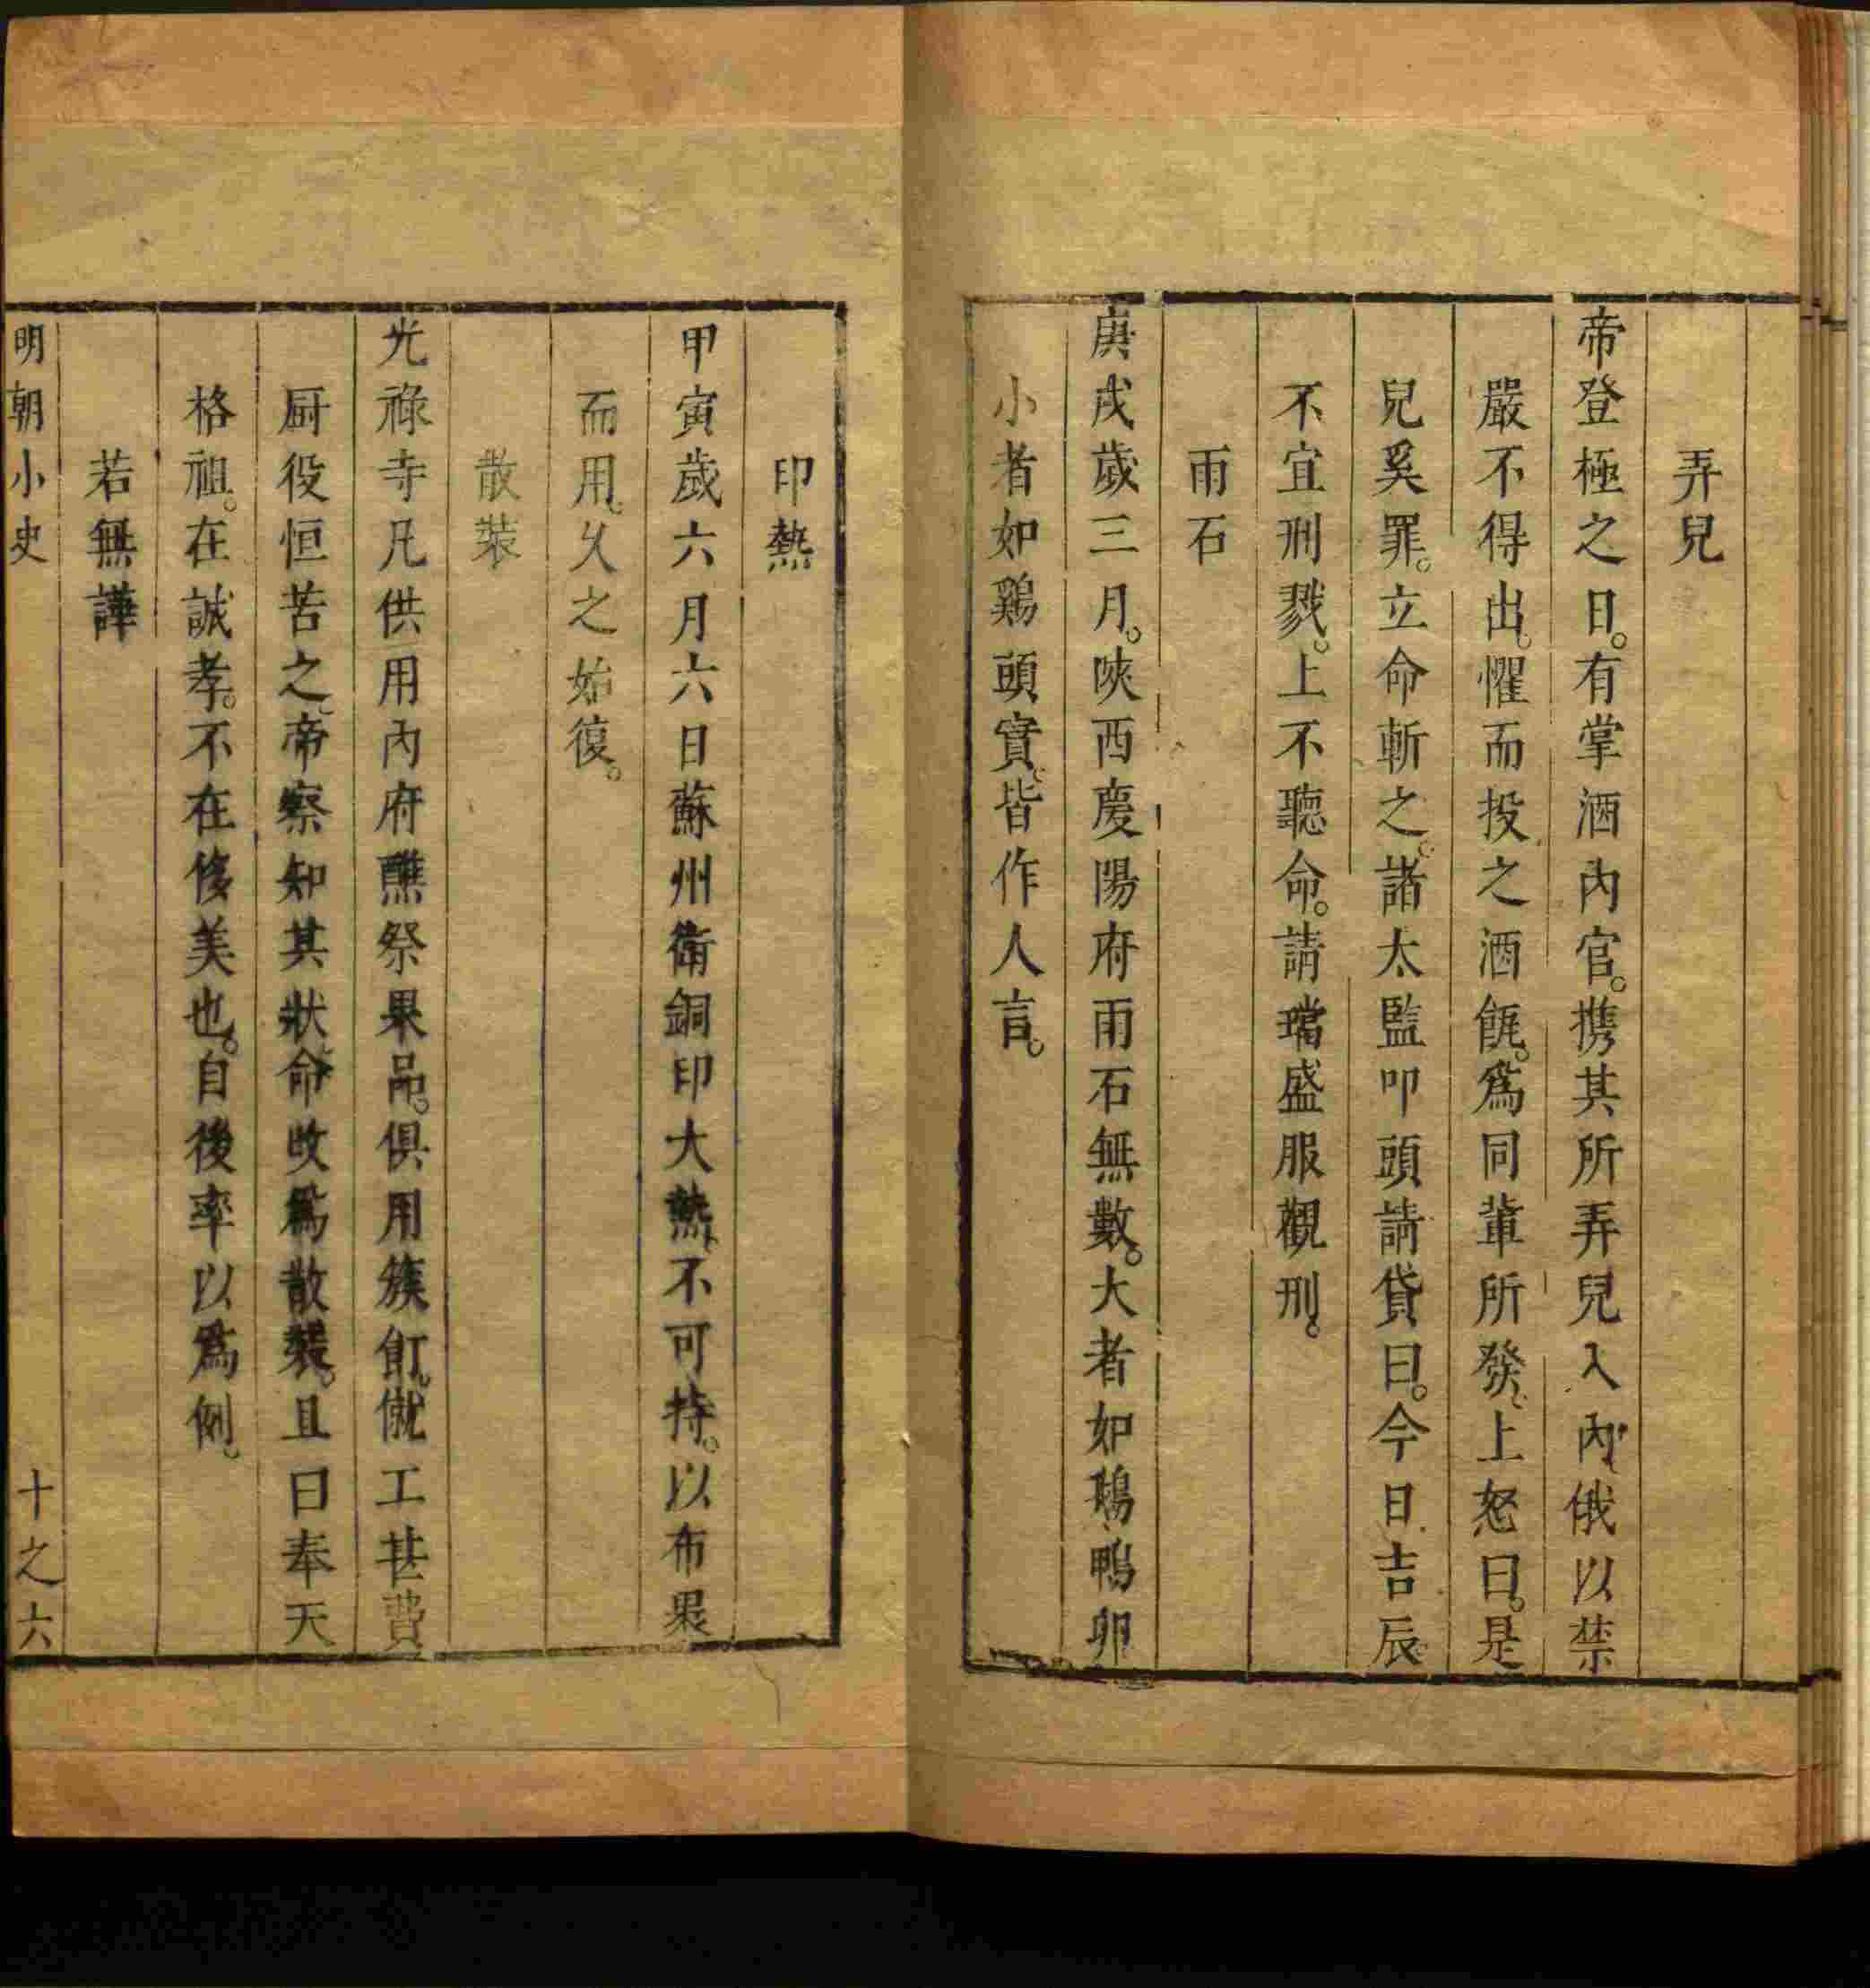 弄兒
帝登極之日。有掌酒內官。携其所弄兒入內。俄以禁
嚴不得出。懼而投之酒𤭁。爲同輩所發。上怒曰。是
兒奚罪。立命斬之。諸太監叩頭請貸曰。今日吉辰。
不宜刑戮。上不聽命。請璫盛服觀刑。
雨石
庚戌歲三月。陜西慶陽府雨石無數。大者如鵝鴨卵。
小者如鷄頭實。皆作人言。
印熱
甲寅歲六月六日蘇州衛銅印大熱。不可持。以布裹
而用。乆之始復。
散裝
光祿寺凡供用內府醮祭果品。俱用簇飣。僦工甚費。
厨役恒苦之。帝察知其狀。命改爲散裝。且曰奉天
格祖。在誠孝。不在侈美也。自後率以爲例。
若無譁
明朝小史
十之六